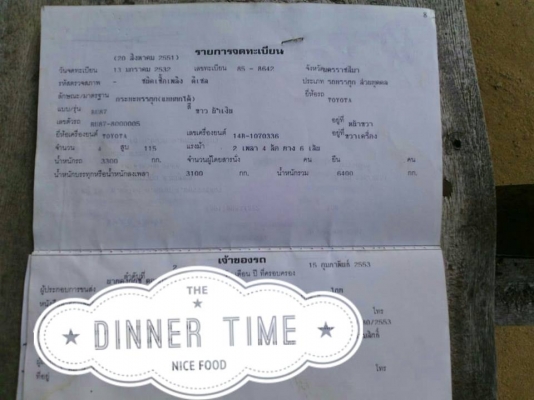 รายการจดทะเบียน
(28 สิงหาคม 2551)
วันจดทะเบียน 13 มกราคม 2532 เลขทะเบียน 85 - 8642 จังหวัดนครราชสีมา
รหัสตรวจสภาพ - ชนิดเชื้อเพลิง ดีเซล ประเภท รถบรรทุก ส่วนบุคคล
ลักษณะ/มาตรฐาน กระบะบรรทุก ยี่ห้อรถ TOYOTA
แบบ/รุ่น BU87 สี ขาว น้ำเงิน
เลขตัวรถ BU87-0000005 อยู่ที่ หน้าขวา
ยี่ห้อเครื่องยนต์ TOYOTA เลขเครื่องยนต์ 14B-1070336 อยู่ที่ ขวางเครื่อง
จำนวน 4 สูบ 115 แรงม้า 2 เพลา 4 ล้อ ยาง 6 เส้น
น้ำหนักรถ 3300 กก. จำนวนผู้โดยสารนั่ง คน ยืน คน
น้ำหนักบรรทุกหรือน้ำหนักลงเพลา 3100 กก. น้ำหนักรวม 6400 กก.
เจ้าของรถ
ลำดับที่ เดือน ปี ที่ครอบครอง 15 กุมภาพันธ์ 2553
ผู้ประกอบการขนส่ง ไทย
โทร
/2553
THE
DINNER TIME
NICE FOOD
ที่อยู่ โทร